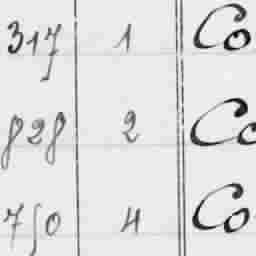 317 1 Co
828 2 Co
750 4 Co